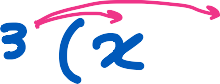 3 (x